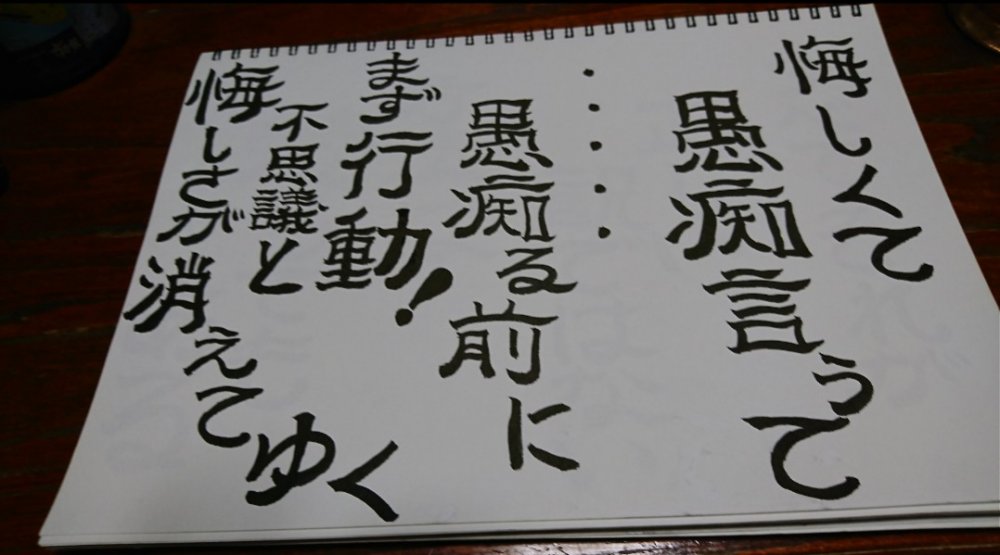 悔しくて
愚痴言って
・・・・・
愚痴る前に
まず行動!
不思議と
悔しさが消えてゆく